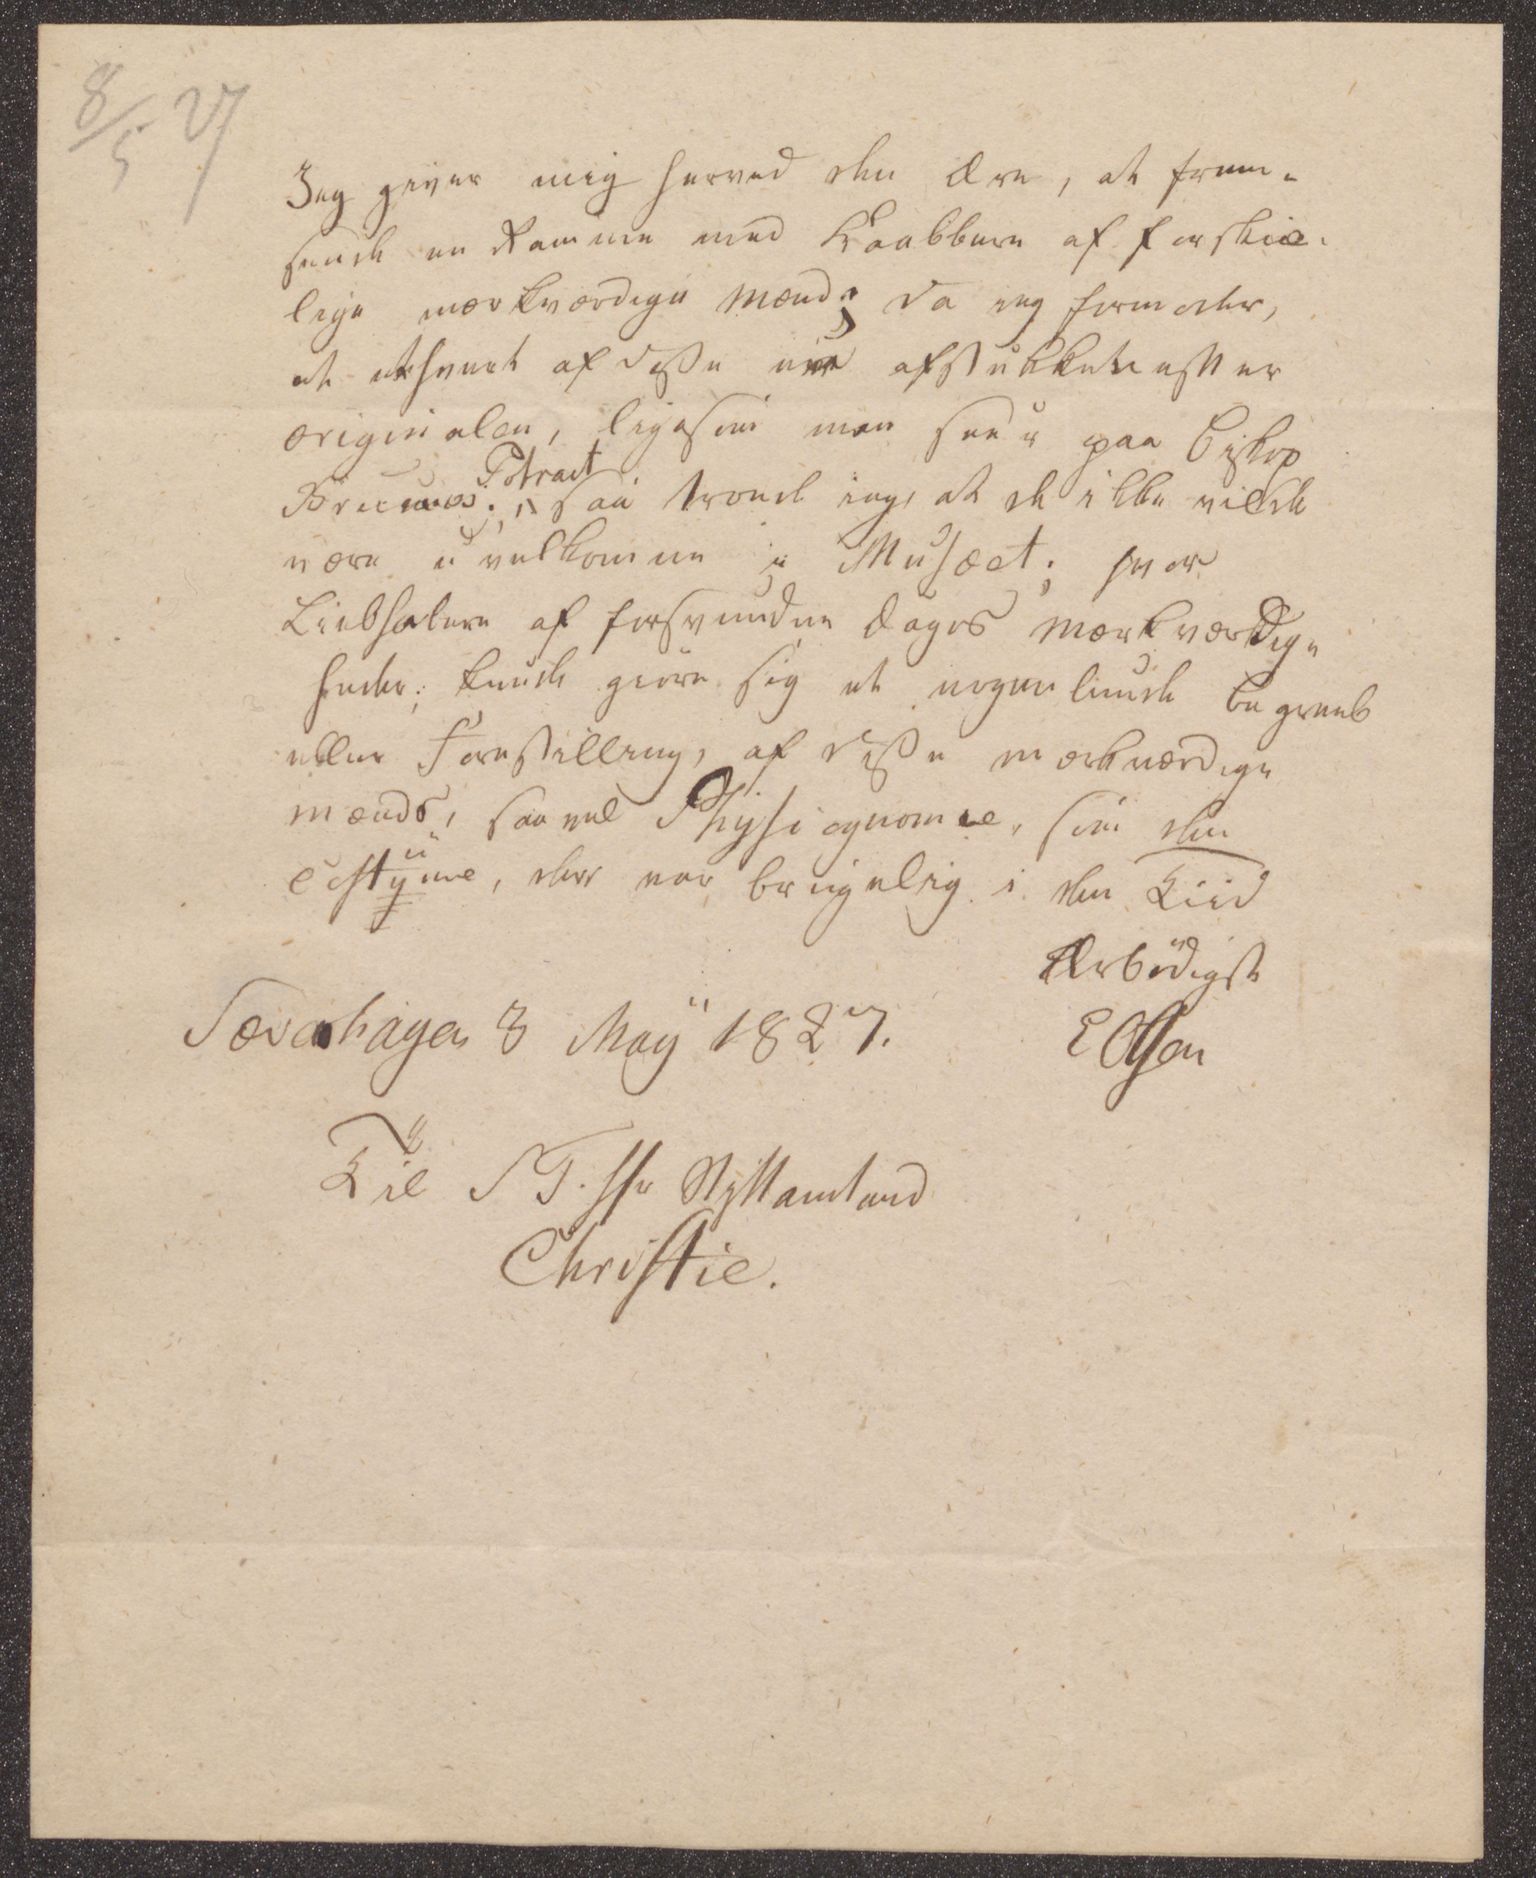 8/5 27
Jeg giver mig herved den Ære, at frem-
sende en Ramme med Kaabbere af forskiæ-
lige mærkværdige Mænd; da jeg formoder,
at ethvert af disse er afstukket efter
originalen, ligesom man seer paa Biskop
Bruuns Potræt, saa troede ieg, at de ikke vilde
være uvelkomne i Musæet; hvor
Liebhabere af forsvundne Dages Mærkværdige
heder, kunde giøre sig et nogenlunde begreeb
eller Forestilling, af disse mærkværdige
mænds, saavel Physiognomie, som den
Costüme, der var brugelig i den Tiid
Ærbödigst
EOlsen
Sævahagen 3 Maÿ 1827.
Til S T. Hr Stiftamtmand
Christie.